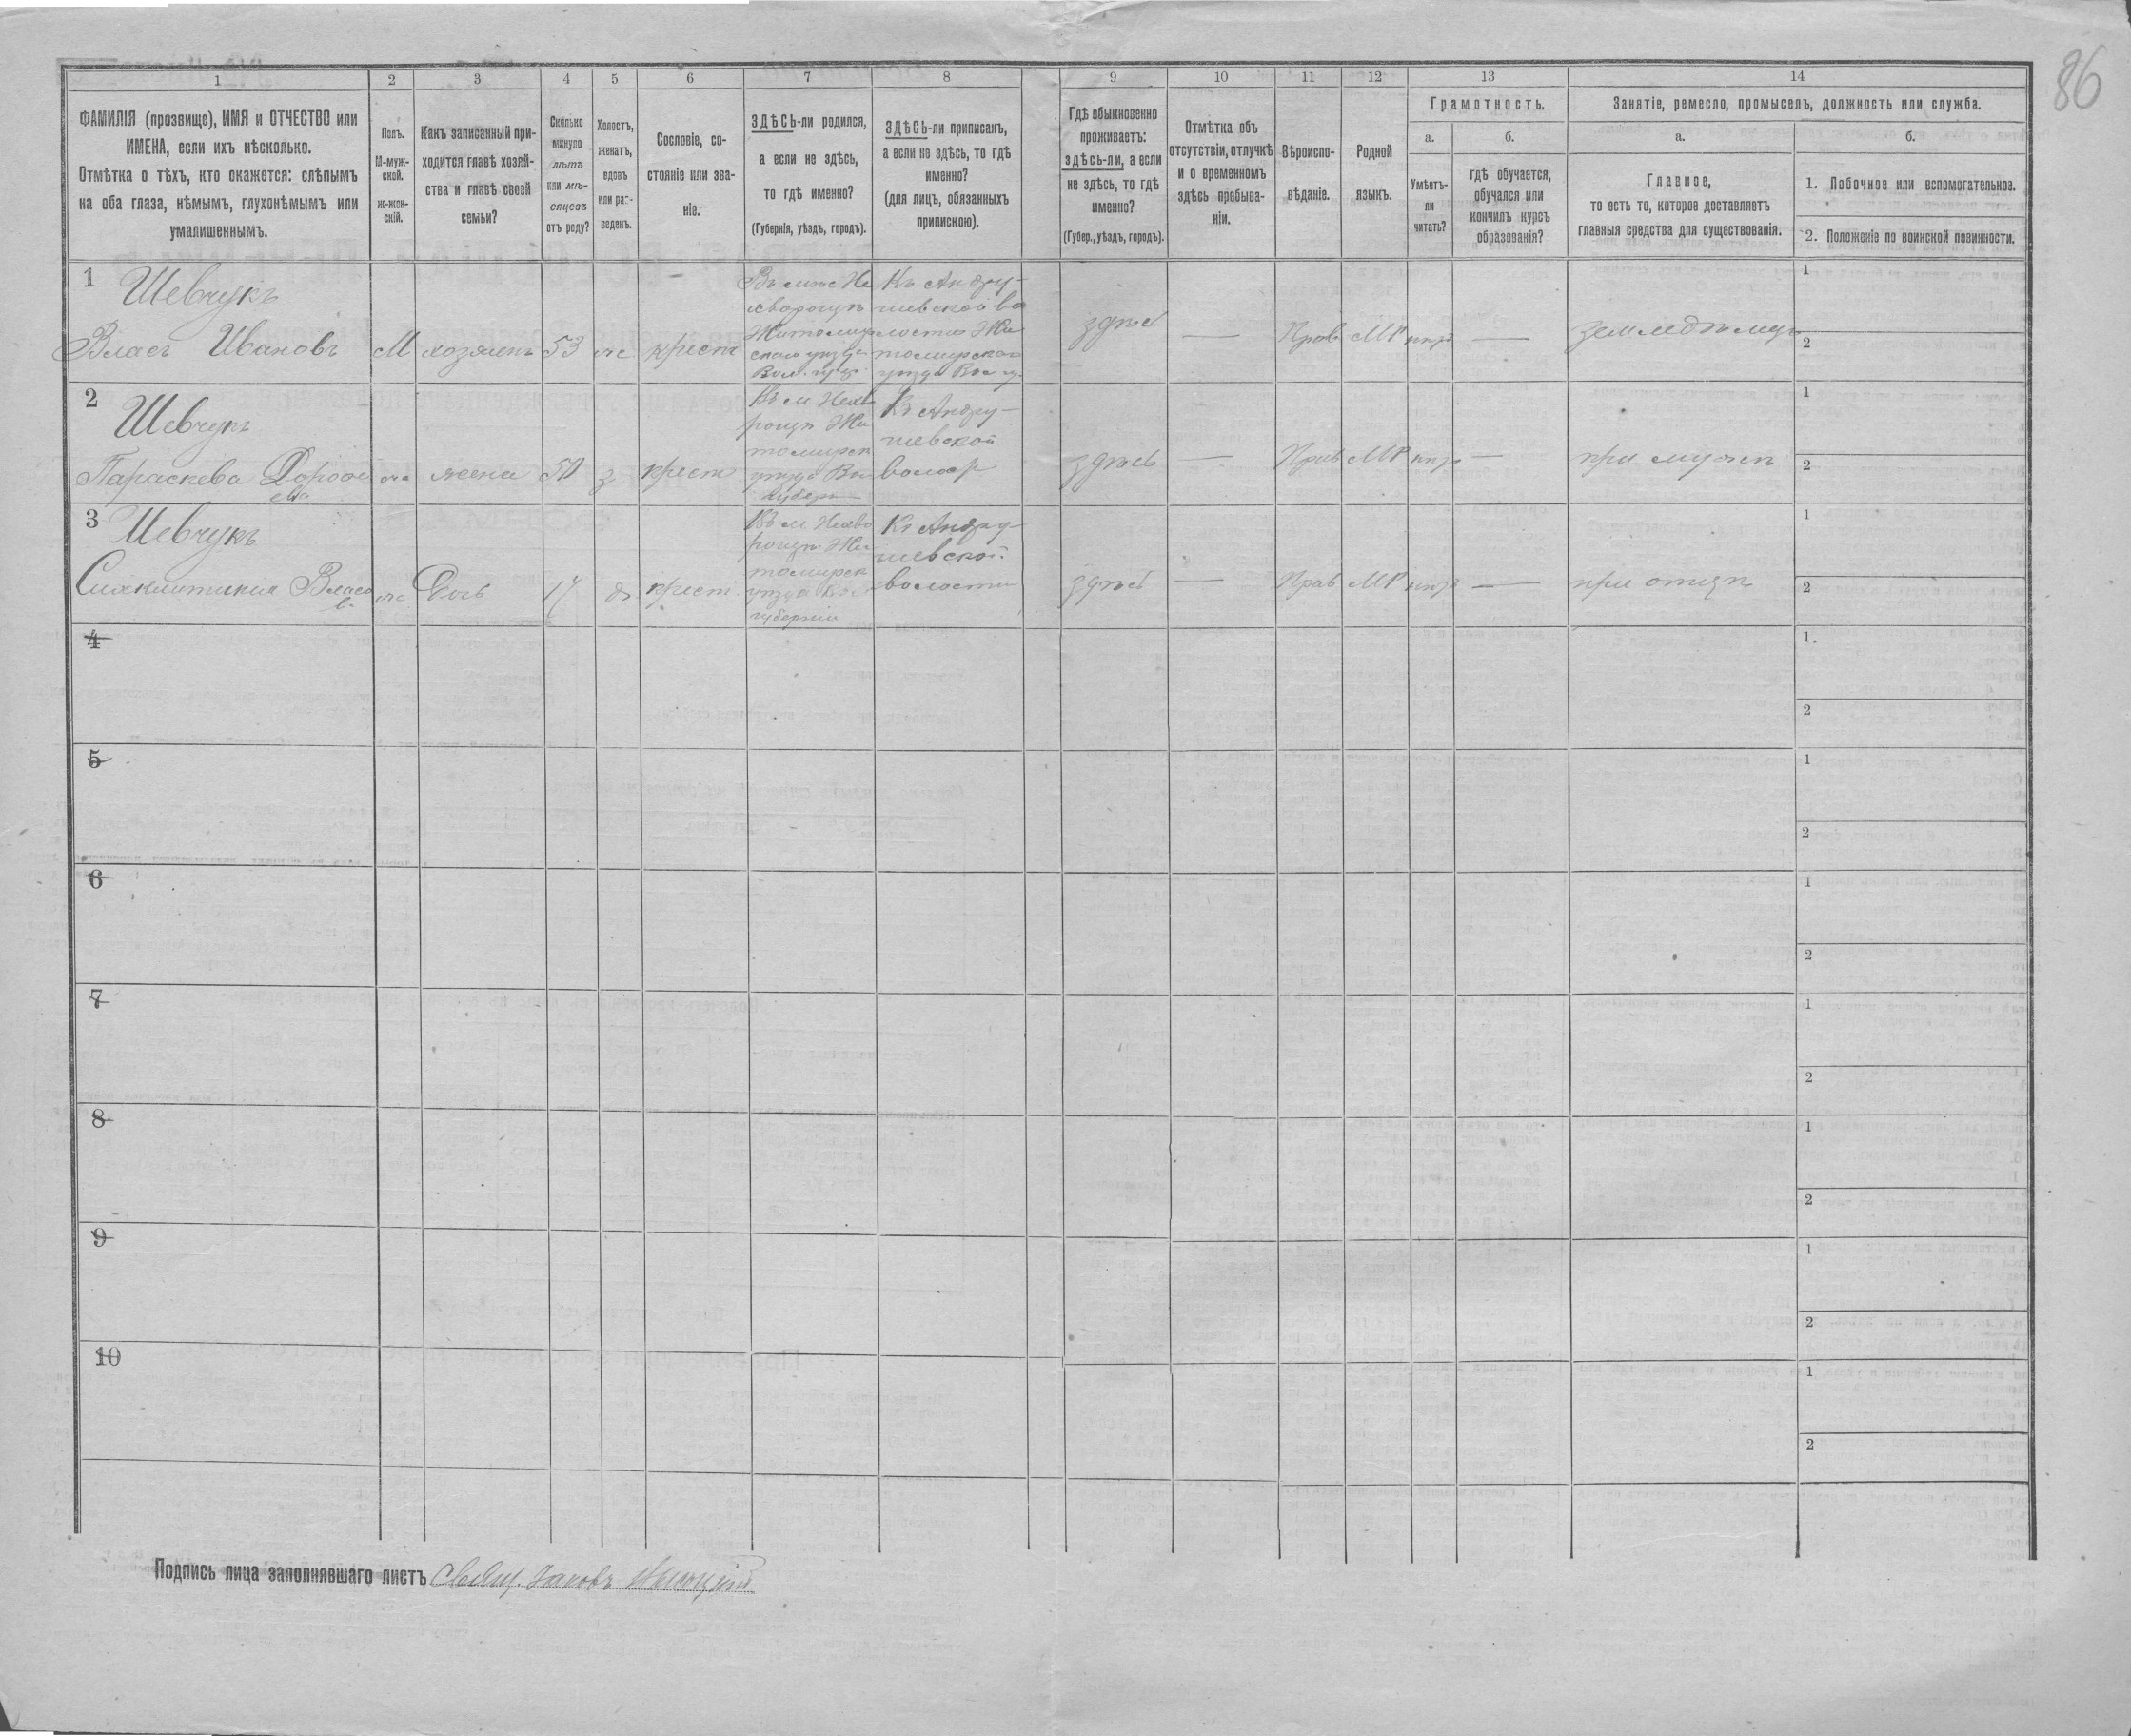 86
1 2 3 4 5 6 7 8 9 10 11 12 13 14
ФАМИЛІЯ (прозвище), ИМЯ и ОТЧЕСТВО или
ИМЕНА, если ихъ нѣсколько.
Отмѣтка о тѣхъ, кто окажется: слѣпымъ
на оба глаза, нѣмымъ, глухонѣмымъ или
умалишеннымъ.
Полъ.
М-муж-
ской.
Ж-жен-
скій.
Какъ записанный при-
ходится главѣ хозяй-
ства и главѣ своей
семьи?
Сколько
минуло
лѣтъ
или мѣ-
сяцевъ
отъ роду?
Холостъ,
женатъ,
вдовъ
или раз-
веденъ.
Сословіе, со-
стояніе или зва-
ніе.
ЗДѢСЬ-ли родился,
а если не здѣсь,
то гдѣ именно?
(Губернія, уѣздъ, городъ).
ЗДѢСЬ-ли приписанъ,
а если не здѣсь, то гдѣ
именно?
(для лицъ, обязанныхъ
припискою).
Гдѣ обыкновенно
проживаетъ:
здѣсь-ли, а если
не здѣсь, то гдѣ
именно?
(Губер., уѣздъ, городъ).
Отмѣтка объ
отсутствіи, отлучкѣ
и о временномъ
здѣсь пребыва-
ніи.
Вѣроиспо-
вѣданіе.
Родной
языкъ.
Грамотность.
а.
Умѣетъ-
ли
читать?
б.
гдѣ обучается,
обучался или
кончилъ курсъ
образованія?
Занятіе, ремесло, промыселъ, должность или служба.
а.
Главное,
то есть то, которое доставляетъ
главныя средства для существованія.
б.
1. Побочное или вспомогательное.
2. Положеніе по воинской повинности.
1
Шевчукъ
Власъ Ивановъ
М
хозяинъ
53
же
крест
Житомир
Къ Андру-
шевской во
лости Жи
томирскаго
здѣсь
—
Прав
МР
—
1
2
2
Шевчукъ
Параскева
жена
50
з.
крест
Въ м Нехво
рощѣ Жи
томирск
Къ Андру-
шевской
здѣсь
—
Прав
МР
—
при мужѣ
1
2
3
Шевчукъ
Власо
в
Дочь
17
крест
Въ м Нехво
рощѣ Жи
томирск
губерніи
Къ Андру-
шевской
волости
здѣсь
—
Прав
МР
—
при отцѣ
1
2
4
1.
2
5
1
2
6
1
2
7
1
2
8
1
2
9
1
2
10
1
2
Подпись лица заполнявшаго листъ Свящ. Іаковъ